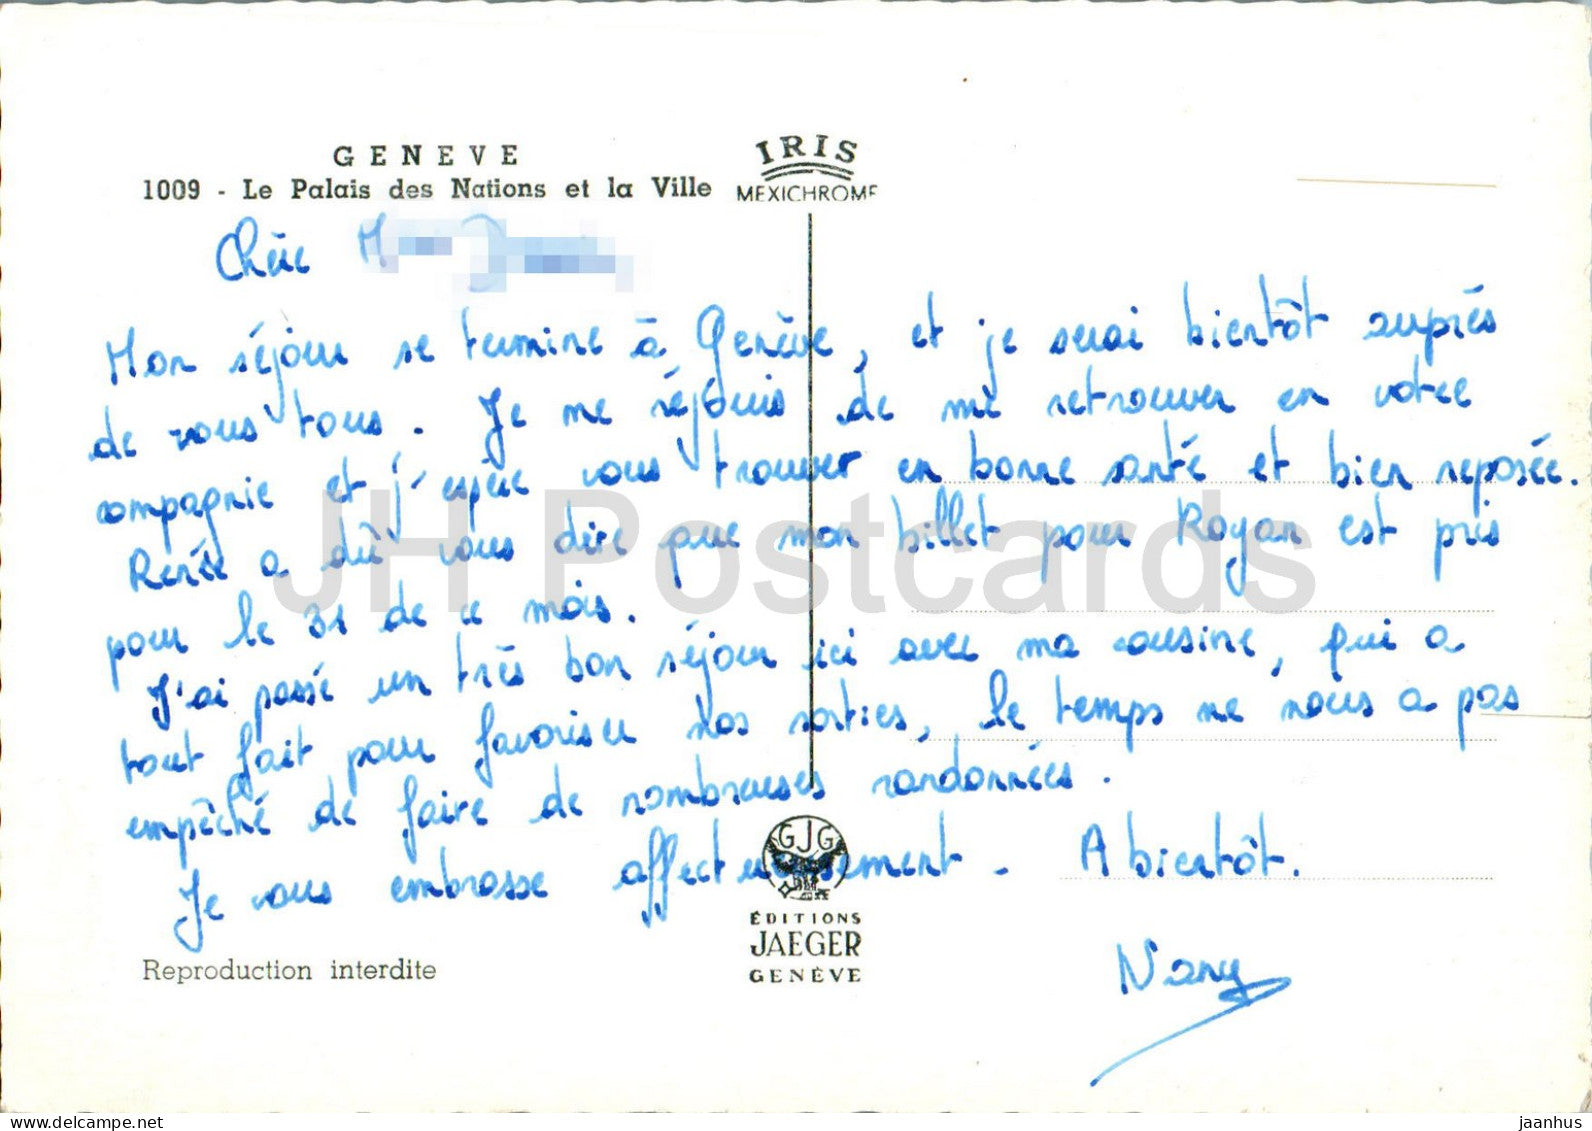 GENEVE
1009 - Le Palais des Nations et la Ville
IRIS
MEXICHROME
Chère
Mon séjour se termine à Genève, et je serai bientôt auprès
de vous tous. Je me réjouis de me retrouver en votre
compagnie et j'espère vous trouver en bonne santé et bien reposée.
Renée a dû vous dire que mon billet pour Royan est pris
pour le 31 de ce mois.
J'ai passé un très bon séjour ici avec ma cousine, qui a
tout fait pour favoriser nos sorties, le temps ne nous a pas
empêché de faire de nombreuses randonnées.
Je vous embrasse affectueusement. A bientôt.
GJG
ÉDITIONS
JAEGER
GENÈVE
Reproduction interdite
Nany
JH Postcards
delcampe.net
jaanhus